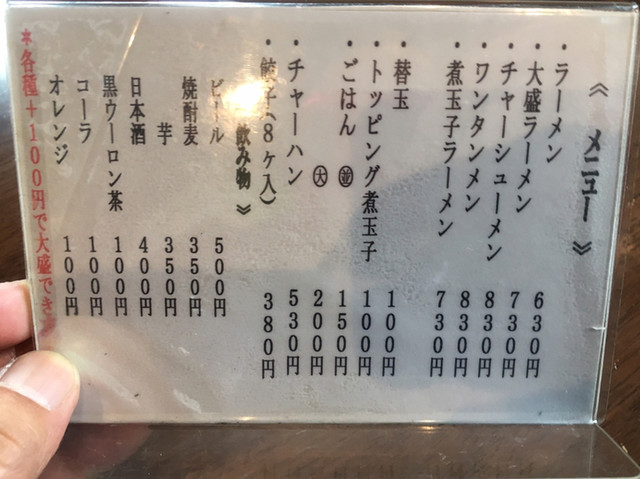 《 メニュー 》
・ラーメン 630円
・大盛ラーメン 730円
・チャーシューメン 830円
・ワンタンメン 830円
・煮玉子ラーメン 730円
・替玉 100円
・トッピング煮玉子 100円
・ごはん ㊀並 150円
大 200円
・チャーハン 530円
・餃子(8ヶ入) 380円
飲み物 》
ビール 500円
焼酎麦 350円
芋 350円
日本酒 400円
黒ウーロン茶 100円
コーラ 100円
オレンジ 100円
*各種+100円で大盛でき